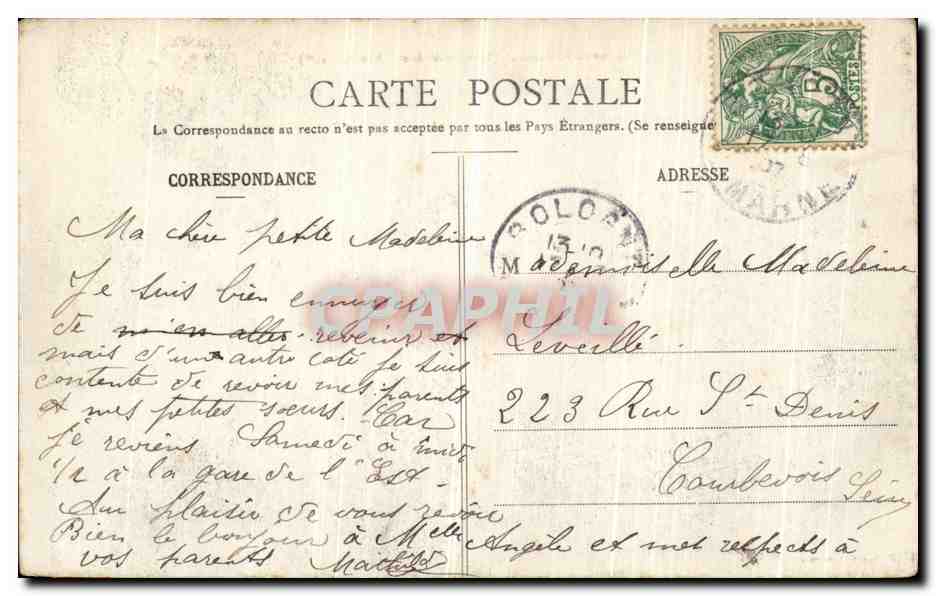 CARTE POSTALE
La Correspondance au recto n'est pas acceptée par tous les Pays Étrangers. (Se renseigne
CORRESPONDANCE
Ma chère petite Madeleine
Je suis bien ennuyée
de m'en aller revenir et
mais d'une autre coté je suis
contente de revoir mes parents
et mes petites soeurs. Car
je reviens Samedi à midi
1/2 à la gare de l'Est.
Au plaisir de vous revoir
Bien le bonjour à Melle Angèle et mes respects à
vos parents Mathilde
ADRESSE
Mademoiselle Madeleine
Leveillé.
223 Rue St Denis
Courbevois Seine
POSTES
5
MARNE
BOLOGNE
13
CPAPHIL